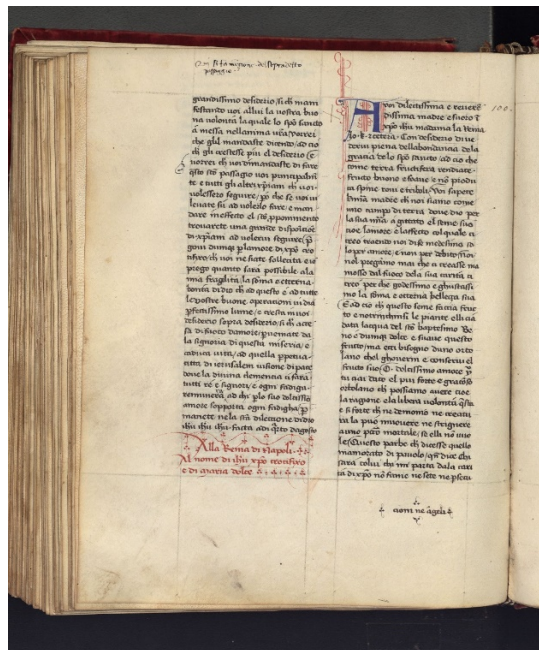 Qui si fa mentione del sopradetto
passagio
grandissimo desiderio, si ch mani
festando voi allui la vostra buo
na volonta la quale lo spo sancto
a messa nellanima vra, vorrei
che gli l mandaste dicendo, ad cio
ch gli crescesse piu el desiderio, e
vorrei ch voi dimandaste di fare
qsto sto passagio voi principalm
te e tutti gli altri xpiani ch voi
volessero seguire, po che se voi vi
levate su ad volerlo fare, e man
dare in effetto el sto pponimento
trovarete una grande dispositioe
di xpiani ad volervi seguire, p
govi dunqs p lamore di xpo cro
cifixo, ch voi ne siate sollecita, e io
prego quanto sara possibile ala
mia fragilita la somma e etterna
bonta di dio ch ad questo e ad tutte
le vostre buone operationi vi dia
pfettissimo lume, e cresca in voi
desiderio sopra desiderio, si ch acce
sa di fuoco damore, pveniate da
la signoria di questa miseria, e
caduca vita, ad quella ppetua
citta di ierusalem visione di pace
dove la divina clementia vi fara
tutti re e signori, e ogni fadiga
remunera ad chi p lo suo dolcissimo
amore sopporta ogni fadigha, p
manete nela sca dilectione di dio
ihu ihu cha facta adi qto dagosto
Alla Reina di Napoli
Al nome di ihu xpo crocifixo
e di maria dolce
100.
A voi dilectissima e revere
dissima madre e suoro i
xpo ihu madama la Reina
Io. K. et cetera. Con desiderio di ve
dervi piena dellabondantia dela
gratia delo spo sancto, ad cio che
come terra fructifera rendiate
fructo buono e suave e no produ
ca spine, ne triboli, Voi sapete
karissima madre ch noi siamo come
uno campo di terra dove dio per
la sua mia a gittato el seme suo
cioe lamore e laffecto col quale ci
creo traendo noi di se medesimo so
lo per amore, e non per debito, noi
nol pregamo mai che ci creasse ma
mosso dal fuoco dela sua carita ci
creo, per che godessimo e gustassi
mo la soma e etterna belleza sua
E ad cio ch questo seme facia fruc
to e notrichinsi le piante elli cia
data lacqua del sco baptesimo. Bo
no e dunqs dolce e suave questo
fructo, ma eci bisogno duno orto
lano chel ghoverni e conservi el
fructo suo, O dilectissimo amore
tu ciai dato el piu forte e gratioso
ortolano ch possiamo avere cioe
la ragione e la libera volonta qsta
e si forte ch ne demonio ne creatu
ra la puo muovere ne strignere
ad uno pcto mortale, se elli no vuo
le, Questo parbe ch dicesse quello
namorato di pavolo, qn dice Chi
sara colui ch mi parta dala cari
ta di xpo no fame ne sete ne psecu
tioni ne angeli